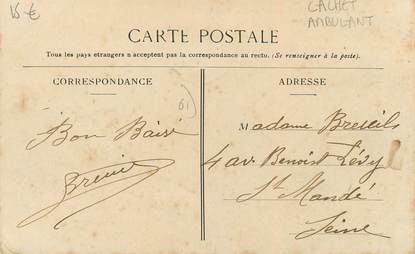 15 €
CACHET
AMBULANT
CARTE POSTALE
Tous les pays étrangers n'acceptent pas la correspondance au recto. (Se renseigner à la poste).
CORRESPONDANCE
ADRESSE
Bon Baisé
Madame Breuils
4 av. Benoist Lévy
St Mandé
Seine